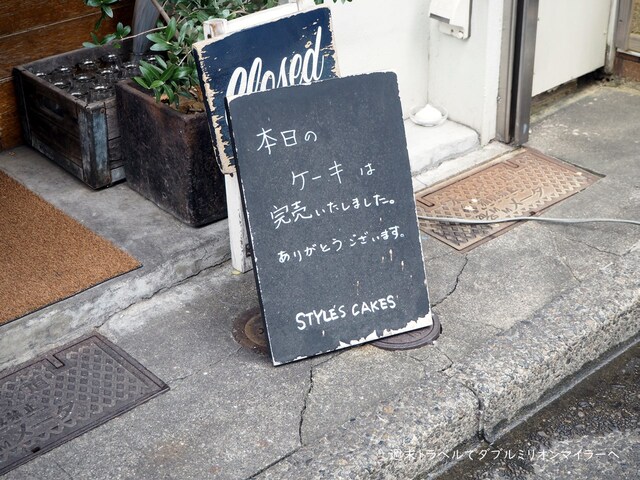 Closed
本日の
ケーキは
完売いたしました。
ありがとうございます。
STYLE'S CAKES
週末トラベルでダブルミリオンマイラーへ